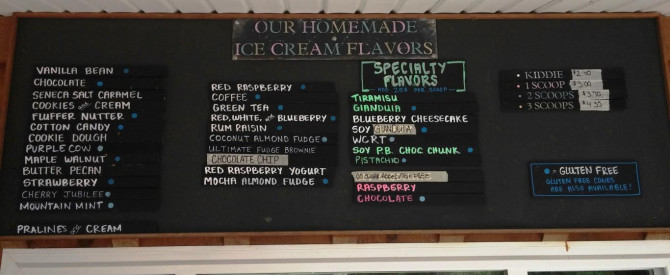 OUR HOMEMADE
ICE CREAM FLAVORS
VANILLA BEAN
CHOCOLATE
SENECA SALT CARAMEL
COOKIES and CREAM
FLUFFER NUTTER
COTTON CANDY
COOKIE DOUGH
PURPLE COW
MAPLE WALNUT
BUTTER PECAN
STRAWBERRY
CHERRY JUBILEE
MOUNTAIN MINT
PRALINES CREAM
RED RASPBERRY
COFFEE
GREEN TEA
RED, WHITE, and BLUEBERRY
RUM RAISIN
COCONUT ALMOND FUDGE
ULTIMATE FUDGE BROWNIE
CHOCOLATE CHIP
RED RASPBERRY YOGURT
MOCHA ALMOND FUDGE
SPECIALTY
FLAVORS
ADD 25¢ PER SCOOP
TIRAMISU
GIANDUIA
BLUEBERRY CHEESECAKE
SOY GIANDUIA
WCRT
SOY P.B. CHOC CHUNK
PISTACHIO
RASPBERRY
CHOCOLATE
• KIDDIE
• 1 SCOOP $3.00
• 2 SCOOPS
• 3 SCOOPS
= GLUTEN FREE
GLUTEN FREE CONES
ARE ALSO AVAILABLE!